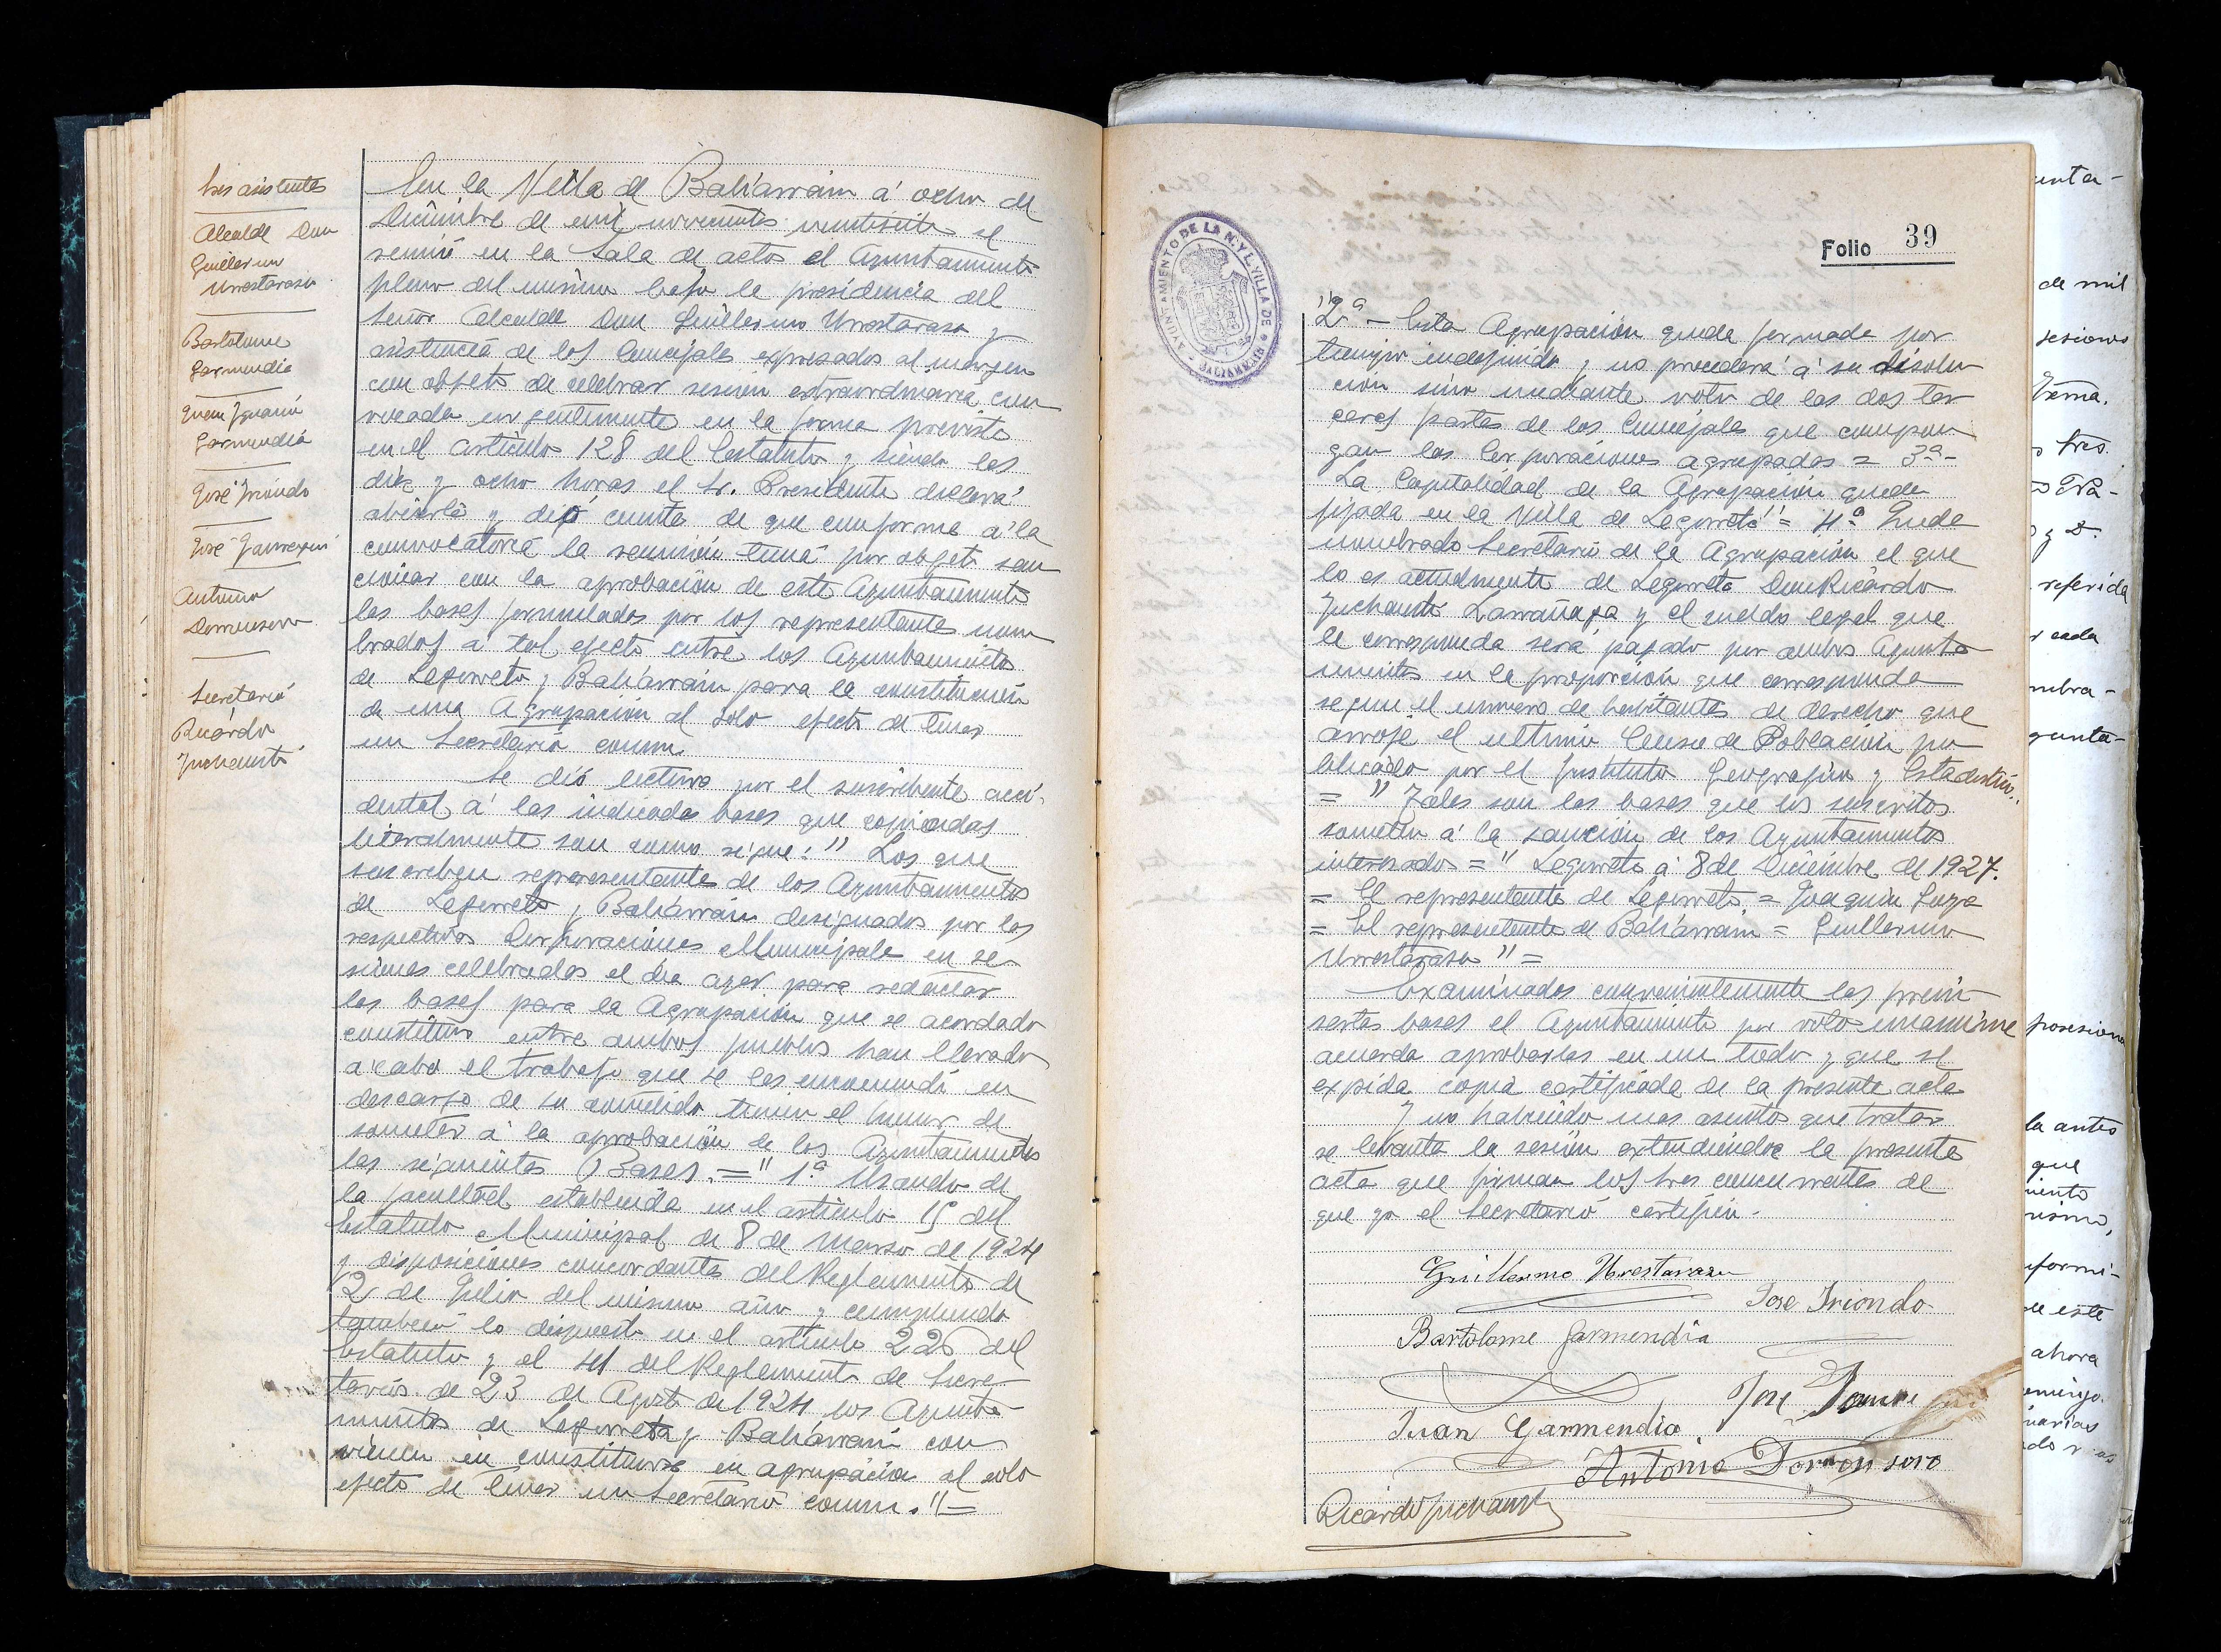 Sres asistentes
Alcalde Don
Guillermo
Urrestarasu
Bartolome
Garmendia
Juan Ignacio
Garmendia
José Iriondo
José Jauregui
Antonio
Dorronsoro
Secretario
Ricardo
Inchausti
En la Villa de Baliarrain á ocho de
Diciembre de mil novecientos veintisiete se
reunió en la Sala de actos el Ayuntamiento
pleno del mismo bajo la presidencia del
Señor Alcalde Don Guillermo Urrestarasu y
asistencia de los Concejales expresados al margen
con objeto de celebrar sesión extraordinaria con
vocada urgentemente en la forma prevista
en el artículo 128 del Estatuto y siendo las
diez y ocho horas el Sr. Presidente declaró
abierta y dió cuenta de que conforme á la
convocatoria la reunión tenia por objeto san
cionar con la aprobación de este Ayuntamiento
las bases formuladas por los representantes nom
brados a tal efecto entre los Ayuntamientos
de Legorreta y Baliarrain para la constitución
de una Agrupacion al solo efecto de tener
un Secretario comun.
Se dió lectura por el suscribente acci-
dental á las indicadas bases que copiadas
literalmente son como sigue: " Los que
suscriben representantes de los Ayuntamientos
de Legorreta y Baliarrain designados por las
respectivas Corporaciones Municipales en se-
siones celebradas el dia ayer para redactar
las bases para la Agrupación que se acordado
constituir entre ambos pueblos han llevado
a cabo el trabajo que se les encomendó en
descargo de su cometido tienen el honor de
someter á la aprobación de los Ayuntamientos
las siguientes Bases. = " 1ª Usando de
la facultad establecida en el articulo 15 del
Estatuto Municipal de 8 de Marzo de 1924
y disposiciones concordantes del Reglamento de
2 de Julio del mismo año y cumpliendo
tambien lo dispuesto en el articulo 226 del
Estatuto y el 41 del Reglamento de Secre-
tarios de 23 de Agosto de 1924 los Ayunta-
mientos de Legorreta y Baliarrain con
vienen en constituirse en agrupación al solo
efecto de tener un Secretario comun." =
AYUNTAMIENTO DE LA N. Y L. VILLA DE BALIARRAIN
Folio 39
"2ª - Esta Agrupación queda formada por
tiempo indefinido y no procederá á su disolu
ción sino mediante voto de las dos ter
ceras partes de los Concejales que compon
gan las Corporaciones agrupadas = 3ª -
La Capitalidad de la Agrupación queda
fijada en la Villa de Legorreta" = 4ª Queda
nombrado Secretario de la Agrupación el que
lo es actualmente de Legorreta Don Ricardo
Inchausti Larrañaga y el sueldo legal que
le corresponda será pagado por ambos Ayunta
mientos en la proporción que corresponda
segun el numero de habitantes de derecho que
arroje el ultimo Censo de Población pu
blicado por el Instituto Geografico y Estadistico.
= " Tales son las bases que los suscritos
someten á la sanción de los Ayuntamientos
interesados = " Legorreta á 8 de Diciembre de 1927.
= El representante de Legorreta = Joaquin
= El representante de Baliarrain = Guillermo
Urrestarasu " =
Examinadas convenientemente las prein
sertas bases el Ayuntamiento por voto unanime
acuerda aprobarlas en un todo y que se
expida copia certificada de la presente acta
Y no habiendo mas asuntos que tratar
se levanta la sesión extendiendose la presente
acta que firman los Sres concurrentes de
que yo el Secretario certifico.
Guillermo Urrestarasu
Jose Iriondo
Bartolome Garmendia
Jose
Juan Garmendia
Antonio Dorronsoro
Ricardo Inchausti
unta-
de mil
sesiones
tres
referida
cada
mbra-
yunta-
posesion
la antes
que
niento
nismo,
nformi-
este
ahora
omingo.